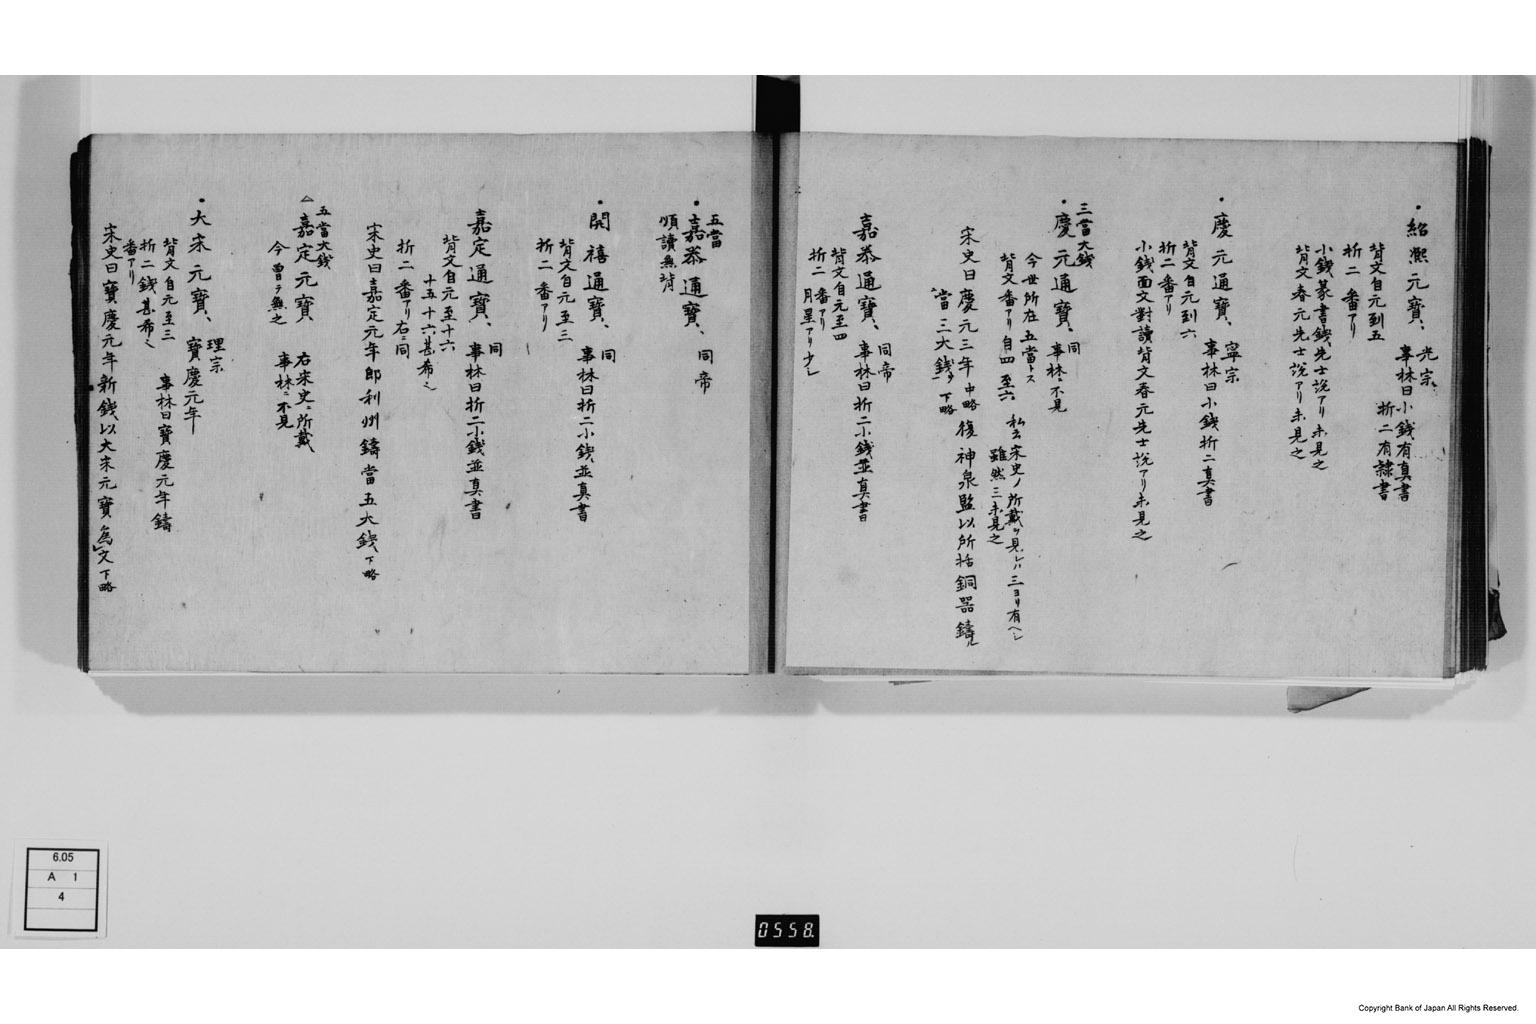 ・紹凞元寳、
光宗、
事林曰小銭有真書
折二有隷書
背文自元到五
折二番アリ
小銭篆書銭、先士説アリ未見之
背文春元先士説アリ未見之
・慶元通寳、
寧宗
事林曰小銭折二真書
背文自元到六
折二番アリ
小銭面文對讀背文春元先士説アリ未見之
三當大銭
・慶元通寳、
同
事林ニ不見
今世所在五當トス
背文番アリ自四至六
私云宋史ノ所載ヲ見レハ三ヨリ有ヘシ
雖然三未見之
宋史曰慶元三年中略復神泉監以所括銅器鑄ル
當三大銭ヲ下略
嘉泰通寳、
同帝
事林曰折二小銭並真書
背文自元至四
折二番アリ月星アリ少シ
五當
・嘉泰通寳、
同帝
順讀無背
・開禧通寳、
同
事林曰折二小銭、並真書
背文自元至三
折二番アリ
嘉定通寳、
同
事林曰折二小銭並真書
背文自元至十六
十五十六甚希也
折二番アリ右ニ同
宋史曰嘉定元年即利州鑄當五大銭、下略
五當大銭
△嘉定元寳
右宋史ニ所載
事林ニ不見
今曽テ無之
・大宋元寳、
理宗
寳慶元年
背文自元至三
事林曰寳慶元年鑄
折二銭甚希也
番アリ
宋史曰寳慶元年新銭、以大宋元寳為文下略
6.05
A 1
4
0558.
Copyright Bank of Japan All Rights Reserved.